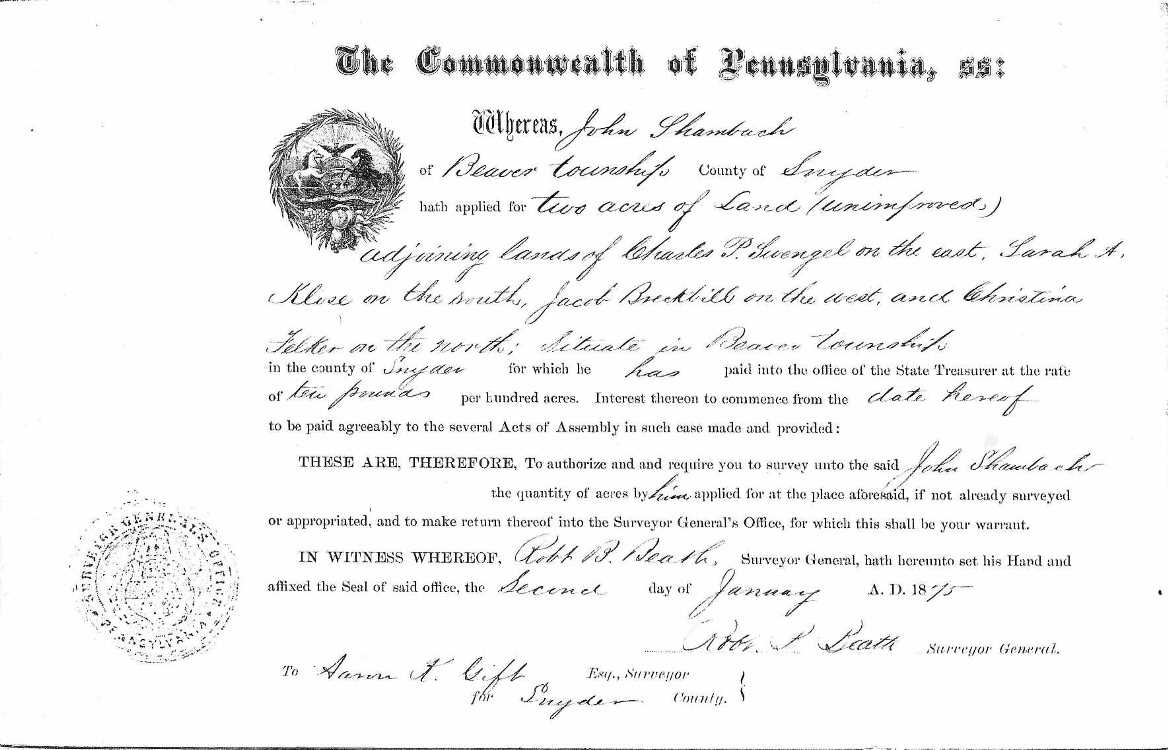 The Commonwealth of Pennsylvania, ss:
Whereas, John Shambach
of Beaver township County of Snyder
hath applied for two acres of Land (unimproved)
adjoining lands of Charles P. Swengel on the east, Sarah A.
Klose on the south, Jacob Breckbill on the west, and Christina
Felker on the north; Situate in Beaver township
in the county of Snyder for which he has paid into the office of the State Treasurer at the rate
of ten pounds per hundred acres. Interest thereon to commence from the date hereof
to be paid agreeably to the several Acts of Assembly in such case made and provided:
THESE ARE, THEREFORE, To authorize and and require you to survey unto the said John Shambach
the quantity of acres by him applied for at the place aforesaid, if not already surveyed
or appropriated, and to make return thereof into the Surveyor General's Office, for which this shall be your warrant.
IN WITNESS WHEREOF, Robt B. Beath, Surveyor General, hath hereunto set his Hand and
affixed the Seal of said office, the Second day of January A. D. 1875
SURVEYOR GENERAL'S OFFICE
PENNSYLVANIA
Robt. B. Beath Surveyor General.
To Aaron K. Gift Esq., Surveyor
for Snyder County.